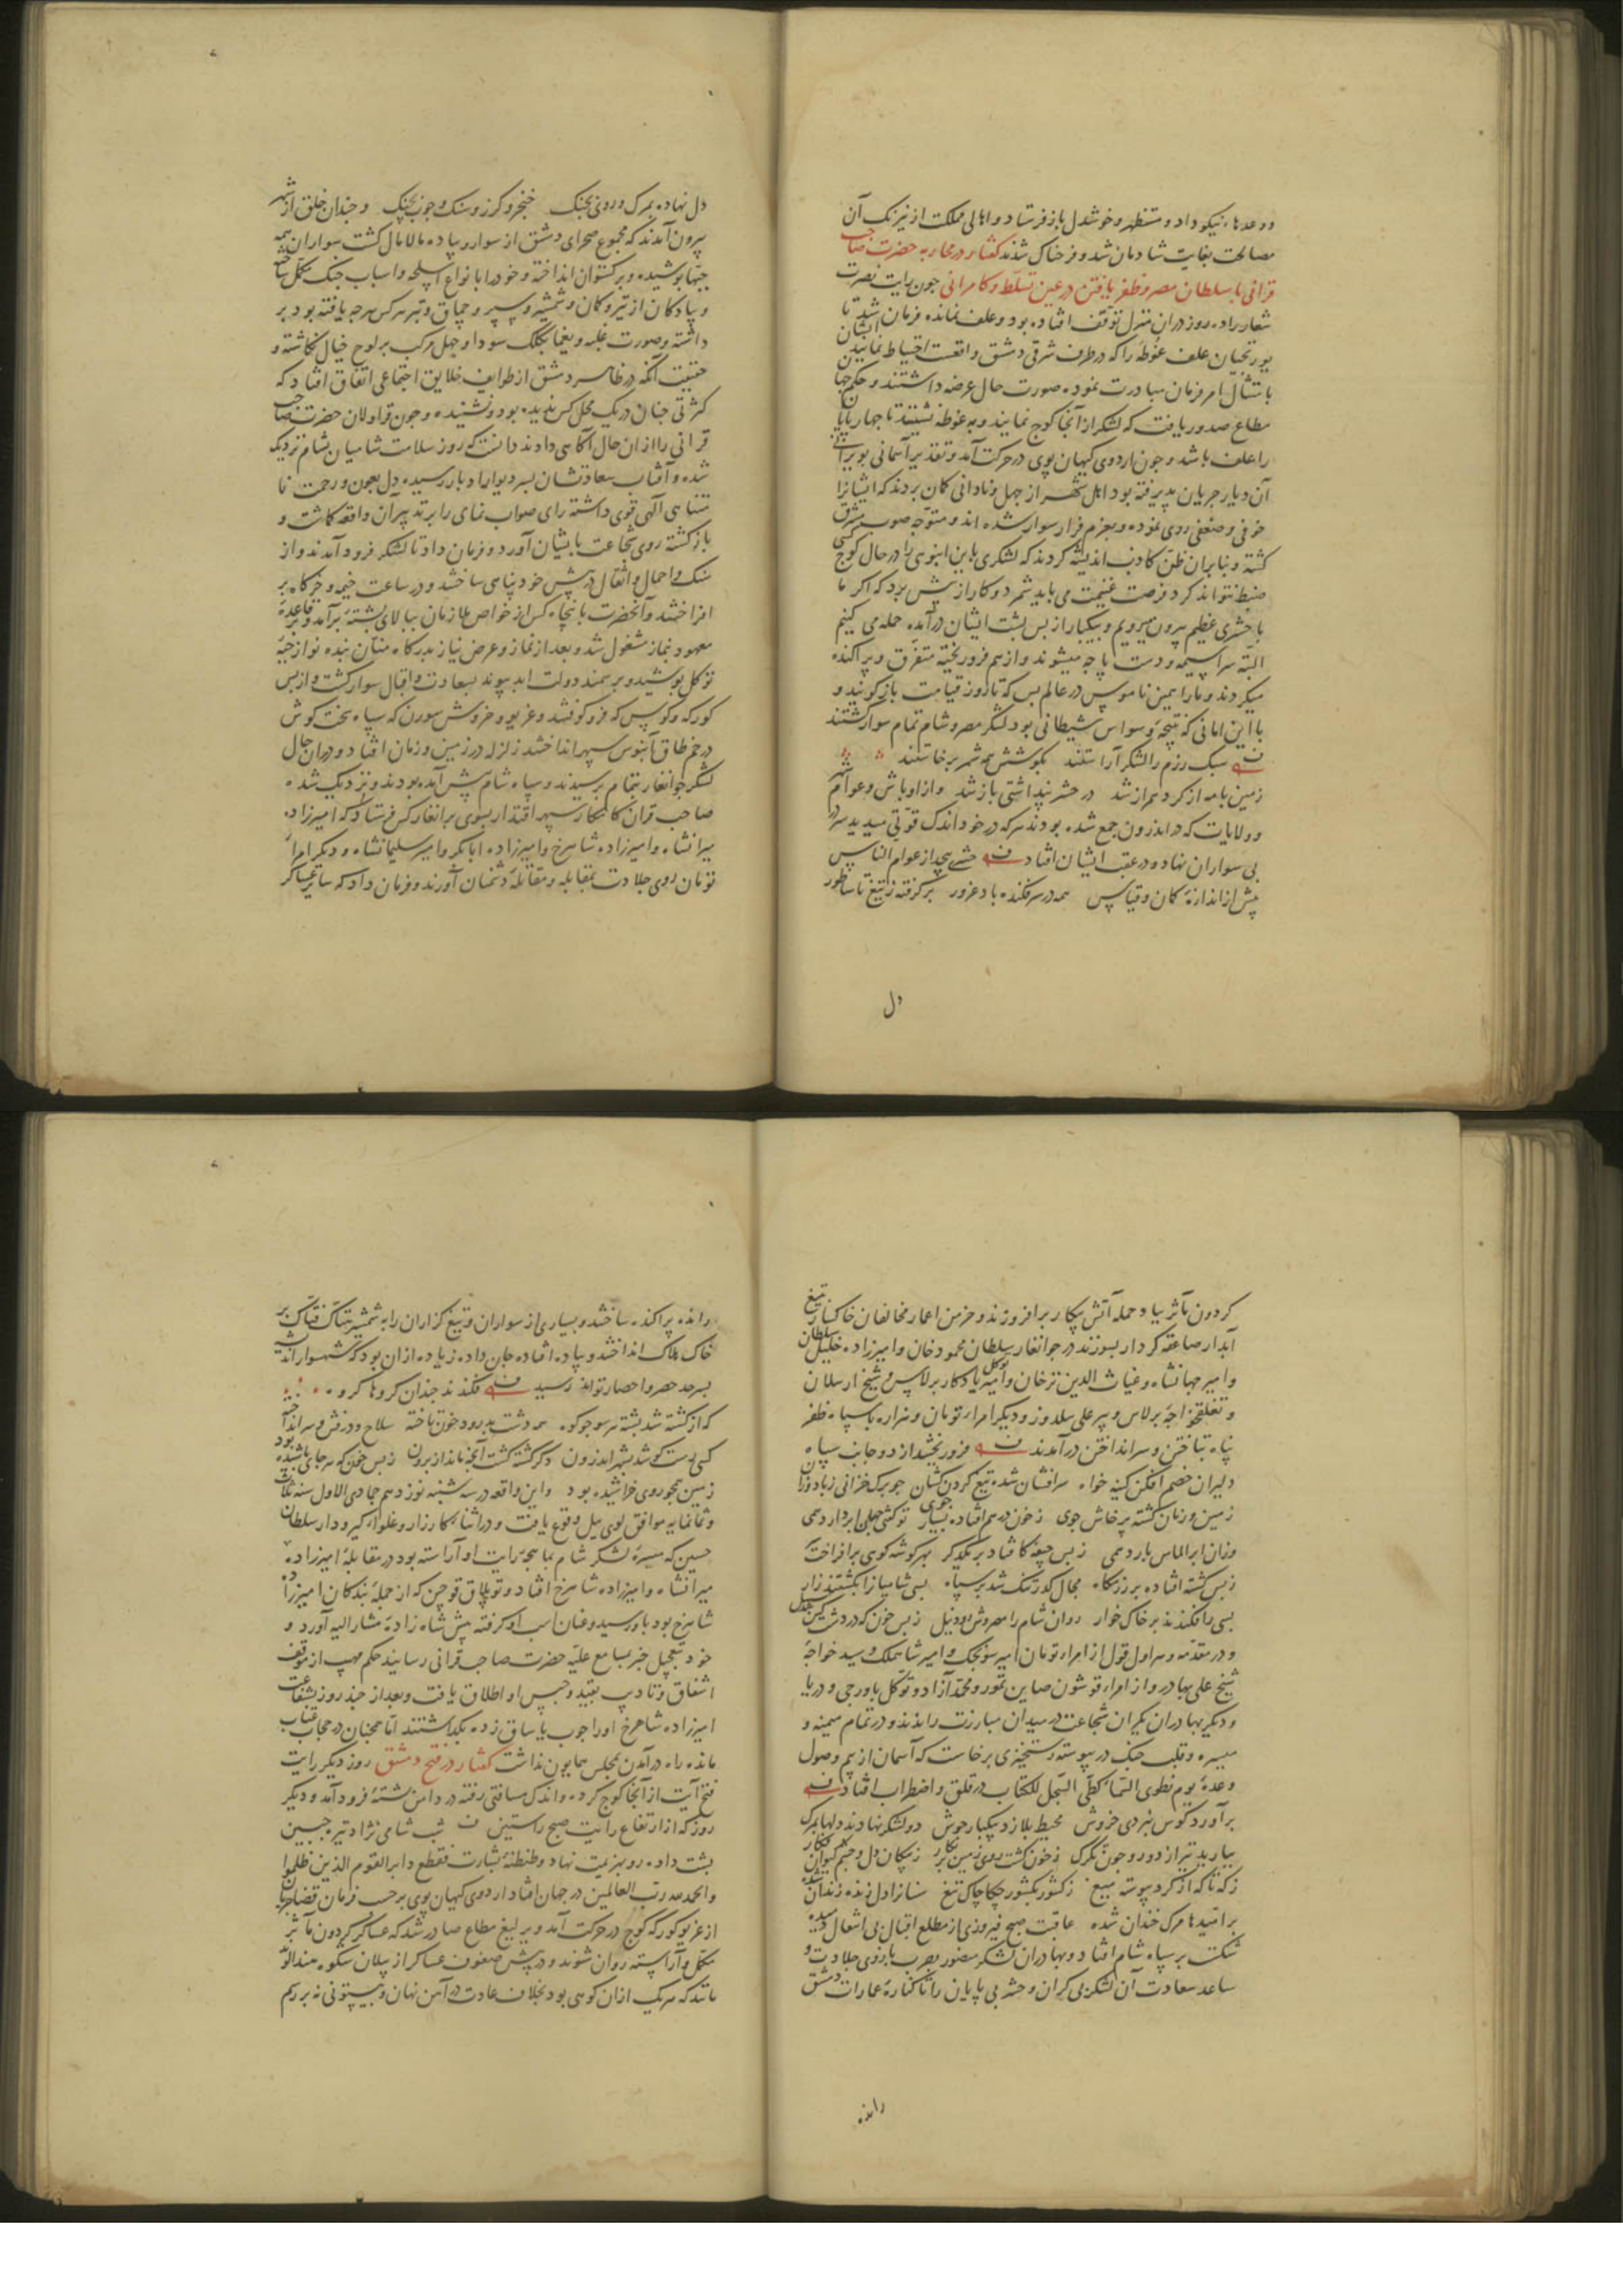 ووعدهاء نیکو داد و مستظهر و خوشدل باز فرستاد و اهالی مملکت از نیرنک آن
مصالحت بغایت شادمان شد و فرحناک شدند کفتار در محاربه حضرت صاحب
قرانی با سلطان مصر و ظفر یافتن در عین تسلط و کامرانی جون رایت نصرت
شعار را ده روز در ان منزل توقف افتاده بود و علف نمانده فرمان شد تا
یورتجیان علف غوطه را که در طرف شرقی دمشق واقعست احتیاط نمایند ایشان
بامتثال امر فرمان مبادرت نموده صورت حال عرضه داشتند و حکم جهان
مطاع صدور یافت که لشکر از آنجا کوج نمایند و به غوطه نشینند تا جهارپایان
را علف باشد و جون اردوی کیهان پوی در حرکت آمد و تقدیر آسمانی بویرانی
آن دیار جریان پذیرفته بود اهل شهر از جهل و نادانی کمان بردند که ایشانرا
خوفی و ضعفی روی نموده و بعزم فرار سوار شده اند و متوجه صوب مشرق
کشته و بنابران ظن کاذب اندیشه کردند که لشکری باین انبوهی را در حال کوج کسی
ضبط نتواند کرد فرصت غنیمت می باید شمرد و کار از پیش برد که اکر ما
با حشری عظیم بیرون میرویم و بیکبار از بس پشت ایشان درآمده حمله می کنیم
البته سراسیمه و دست پاچه میشوند و از هم فرو ریخته متفرق و پراکنده
میکردند و ما را همین ناموس در عالم بس که تا روز قیامت باز کویند و
با این امانی که نتیجه وسواس شیطانی بود لشکر مصر و شام تمام سوار کشتند
سبک رزم را لشکر آراستند بکوشش همه شهر برخاستند
زمین با مه از کرد همراز شد در حشر پنداشتی باز شد و از اوباش و عوام شهر
و ولایات که در اندرون جمع شده بودند هر که در خود اندک قوتی میدید سر در
پی سواران نهاده و در عقب ایشان افتاد حشری بیحد از عوام الناس
بیش از اندازهٔ کمان و قیاس همه در سر فکنده باد غرور برکرفته ز تیغ تا ساطور
دل
دل نهاده بمرک و روی بجنک خنجر و کرز و سنک و جوب بچنک و جندان خلق از شهر
بیرون آمدند که مجموع صحرای دمشق از سوار و پیاده مالامال کشت سواران همه
جیبها پوشیده و برکستوان انداخته و خود را بانواع اسلحه و اسباب جنک مکمل ساخته
و پیادکان از تیر و کمان و شمشیر و سپر و چماق و تبر هر کس هر جه یافته بود بر
داشته و صورت غلبه و یغما بکلک سودا و جهل مرکب بر لوح خیال نکاشته و
حقیقت آنکه در ظاهر دمشق از طوایف خلایق اجتماعی اتفاق افتاد که
کثرتی جنان در یک محل کس ندیده بود و نشنیده و جون قراولان حضرت صاحب
قرانی را از ان حال آکاهی دادند دانست که روز سلامت شامیان بشام نزدیک
شده و آفتاب سعادتشان بسر دیوار ادبار رسیده دل بعون و رحمت نا
متناهی الهی قوی داشته رای صواب نمای را بر تدبیر آن واقعه کماشت و
باز کشته روی شجاعت بایشان آورد و فرمان داد تا لشکر فرود آمدند و از
سنک و احمال و اثقال در پیش خود پناهی ساختند و در ساعت خیمه و خرکاه بر
افراختند و آنحضرت با پنجاه کس از خواص ملازمان ببالای پشته برآمد و بر قاعده
معهود بنماز مشغول شد و بعد از نماز و عرض نیاز بدرکاه منان بنده نواز جبه
توکل پوشید و بر سمند دولت ابد پیوند بسعادت و اقبال سوار کشت و از بس
کورکه و کوس که فرو کوفتند و غریو و خروش سورن که سپاه سخت کوش
در خم طاق آبنوس سپهر انداختند زلزله در زمین و زمان افتاد و در ان حال
لشکر جوانغار بتمام برسیدند و سپاه شام پیش آمده بودند و نزدیک شده
صاحب قران کامکار سپهر اقتدار بسوی برانغار کس فرستاد که امیرزاده
میرانشاه و امیرزاده شاهرخ و امیرزاده ابابکر و امیر سلیمانشاه و دیکر امراء
تومان روی جلادت بمقابله و مقاتله دشمنان آورند و فرمان داد که سایر عساکر
کردون مآثر بباد حمله آتش پیکار بر افروزند و خرمن اعمار مخالفان خاکسار بتیغ
آبدار صاعقه کردار بسوزند در جوانغار سلطان محمود خان و امیرزاده خلیل سلطان
و امیر جهانشاه و غیاث الدین ترخان و امیر یادکار برلاس و شیخ ارسلان
و تغلقخواجه برلاس و پیر علی سلدوز و دیکر امرا تومان و هزاره با سپاه ظفر
پناه بتاختن و سر انداختن درآمدند فرو ریختند از دو جانب سپاه
دلیران خصم افکن کینه خواه سرافشان شده تیغ کردن کشان جو برک خزانی زباد وزان
زمین و زمان کشته پرخاش جوی ز خون در هم افتاده بسیار جوی تو کفتی جهان ابر دارد همی
وزان ابر الماس بارد همی ز بس جیفه کافتاد بر یکدکر بهر کوشه کوهی برافراخت
ز بس کشته افتاده بر رزمکاه مجال کذر تنک شد بر سپاه بسی شامیانرا بکشتند زار
بسی را فکندند بر خاک خوار روان شام را مصر و ش رود نیل ز بس خون که در دشت کین شد سبیل
و در مقدمه و هراول قول از امراء تومان امیر سونجک و امیر شاهملک و سید خواجه
شیخ علی بهادر و از امراء قوشون صاین تمور و محمد آزاد و توکل باورجی و دریا
و دیکر بهادران یکران شجاعت در میدان مبارزت راندند و در تمام میمنه و
میسره و قلب جنک در پیوسته رستخیزی برخاست که آسمان از بیم وصول
وعدهٔ یوم نطوی السماء کطی السجل للکتاب در قلق و اضطراب افتاد
برآورد کوس نبردی خروش محیط بلا زد بیکبار جوش دو لشکر نهادند دلها بمرک
ببارید تیر از دو رو جون تکرک ز خون کشت روی زمین پر نکار ز پیکان دل و چشم کیوان فکار
ز که تا که از کرد پوسته میغ ز کشور بکشور چکاچاک تیغ سنانرا دل زنده زندان شده
بر امیدها مرک خندان شده عاقبت صبح فیروزی از مطلع اقبال بی انتقال دمید
شکست بر سپاه شام افتاد و بهادران لشکر منصور بضرب بازوی جلادت و
ساعد سعادت آن لشکر بی کران و حشر بی پایان را تا کنارهٔ عمارات دمشق
رانده
رانده پراکنده ساختند و بسیاری از سواران و تیغ کزاران را بشمشیر هتاک فتاک بر
خاک هلاک انداختند و پیاده افتاده جان داده زیاده از ان بود که شهسوار اندیشه
بسرحد حصر و احصار تواند رسید فکندند جندان کروها کروه
که از کشته شد پشته هر سو جو کوه همه دشت بد رود خون تاخته سلاح و درفش و سر انداخته
کسی رست کو شد بشهر اندرون دکر کشته کشت آنجه ماند از برون ز بس خون که هر جای پاشیده بود
زمین همجو روی خراشیده بود و این واقعه در سه شنبه نوزدهم جمادی الاول سنه ثلث
و ثمانمایه موافق لوی ییل وقوع یافت و در اثناء کارزار و غلواء کیرودار سلطان
حسین که میسرهٔ لشکر شام بماهجه رایت او آراسته بود در مقابلهٔ امیرزاده
میرانشاه و امیرزاده شاهرخ افتاد و توبلاق قوجین که از جملهٔ بندکان امیرزاده
شاهرخ بود باو رسید و عنان اسب او کرفته پیش شاه زادهٔ مشار الیه آورد و
خود بتعجیل خبر بمسامع علیه حضرت صاحب قرانی رسانید حکم مهیب از موقف
اشفاق و تادیب بقید و حبس او اطلاق یافت و بعد از جند روز بشفاعت
امیرزاده شاهرخ او را جوب یاساق زده بکذاشتند اما همجنان در حجاب عتاب
مانده راه درآمدن مجلس همایون نداشت کفتار در فتح دمشق روز دیکر رایت
فتح آیت از آنجا کوج کرده و اندک مسافتی رفته در دامن پشتهٔ فرود آمد و دیکر
روز که از ارتفاع رایت صبح راستین شب شامی نژاد تیره جبین
پشت داده رو بهزیمت نهاد و طنطنهٔ بشارت فقطع دابر القوم الذین ظلموا
و الحمد لله رب العالمین در جهان افتاد اردوی کیهان پوی بر حسب فرمان قضا جریان
از غریو کورکه کوج در حرکت آمد و یرلیغ مطاع صادر شد که عساکر کردون مآثر
مکمل و آراسته روان شوند و در پیش صفوف عساکر از پیلان شکوه مند الوند
مانند که هر یک از ان کوهی بود بخلاف عادت در آهن نهان و بیستونی نه بر رسم